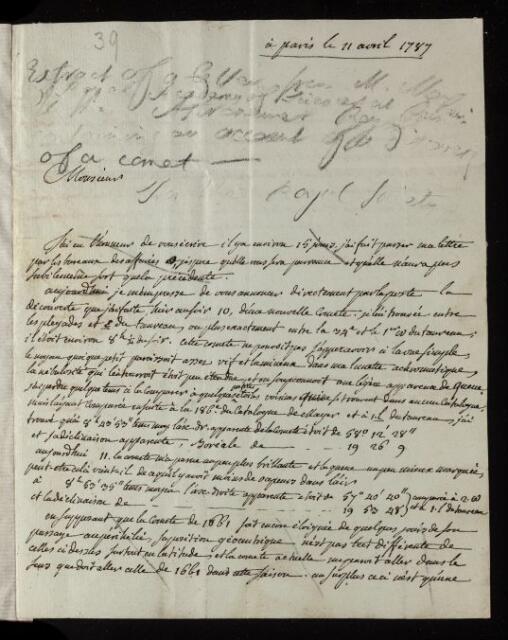 39
à paris le 11 avril 1787
Extract of a Letter from M.
of the Academy of Sciences at
Astronomer
containing an account of the Discovery
of a comet —
Monsieur
Royal Society
J'ai eu l'honneur de vous écrire il y a environ 15 jours, j'ai fait passer ma lettre
par les bureaux des affaires j'espère qu'elle vous sera parvenue et qu'elle n'aura pas
subi le même sort que la précédente.
aujourd'hui je m'empresse de vous annoncer directement par la poste la
découverte que j'ai faite hier au soir 10, d'une nouvelle Comete. je l'ai trouvée entre
les pleyades et du taureau, ou plus exactement entre la 34e et le 1er du taureau;
il étoit environ 8h ½ du soir. cette comete ne pouvoit pas s'appercevoir à la vue simple,
le noyau quoique petit paroissoit assez vif et lumineux dans ma lunette achromatique,
la nébulosité qui l'entouroit étoit peu étendue, et on soupçonnoit une légère apparence de queue.
à quelques étoiles voisines qui ne se trouvent dans aucun catalogue,
mais l'ayant comparée ensuite à la 186e du catalogue de Mayer et à du taureau, j'ai
trouvé qu'à 8h 40' 53" tems moy. l'asc. dr. apparente de la Comete étoit de 58° 12' 28"
et sa déclinaison apparente, Boréale de — 19 26 9
aujourd'hui 11. la comete m'a paru un peu plus brillante et la queue un peu mieux marquée,
peut-être cela vient-il de ce qu'il y avoit moins de vapeurs dans l'air
à 8h 53' 35" tems moyen l'asc. droite apparente étoit de 57° 40' 40"
et la déclinaison de — 19 53 48 du taureau
en supposant que la comete de 1661 soit encore éloignée de quelques jours de son
passage au périhélie, sa position géocentrique n'est pas tout différente de
celles ci dessus surtout en latitude; et la comete actuelle me paroit aller dans le
sens que doit aller celle de 1661 dans cette saison. au surplus ceci n'est qu'une